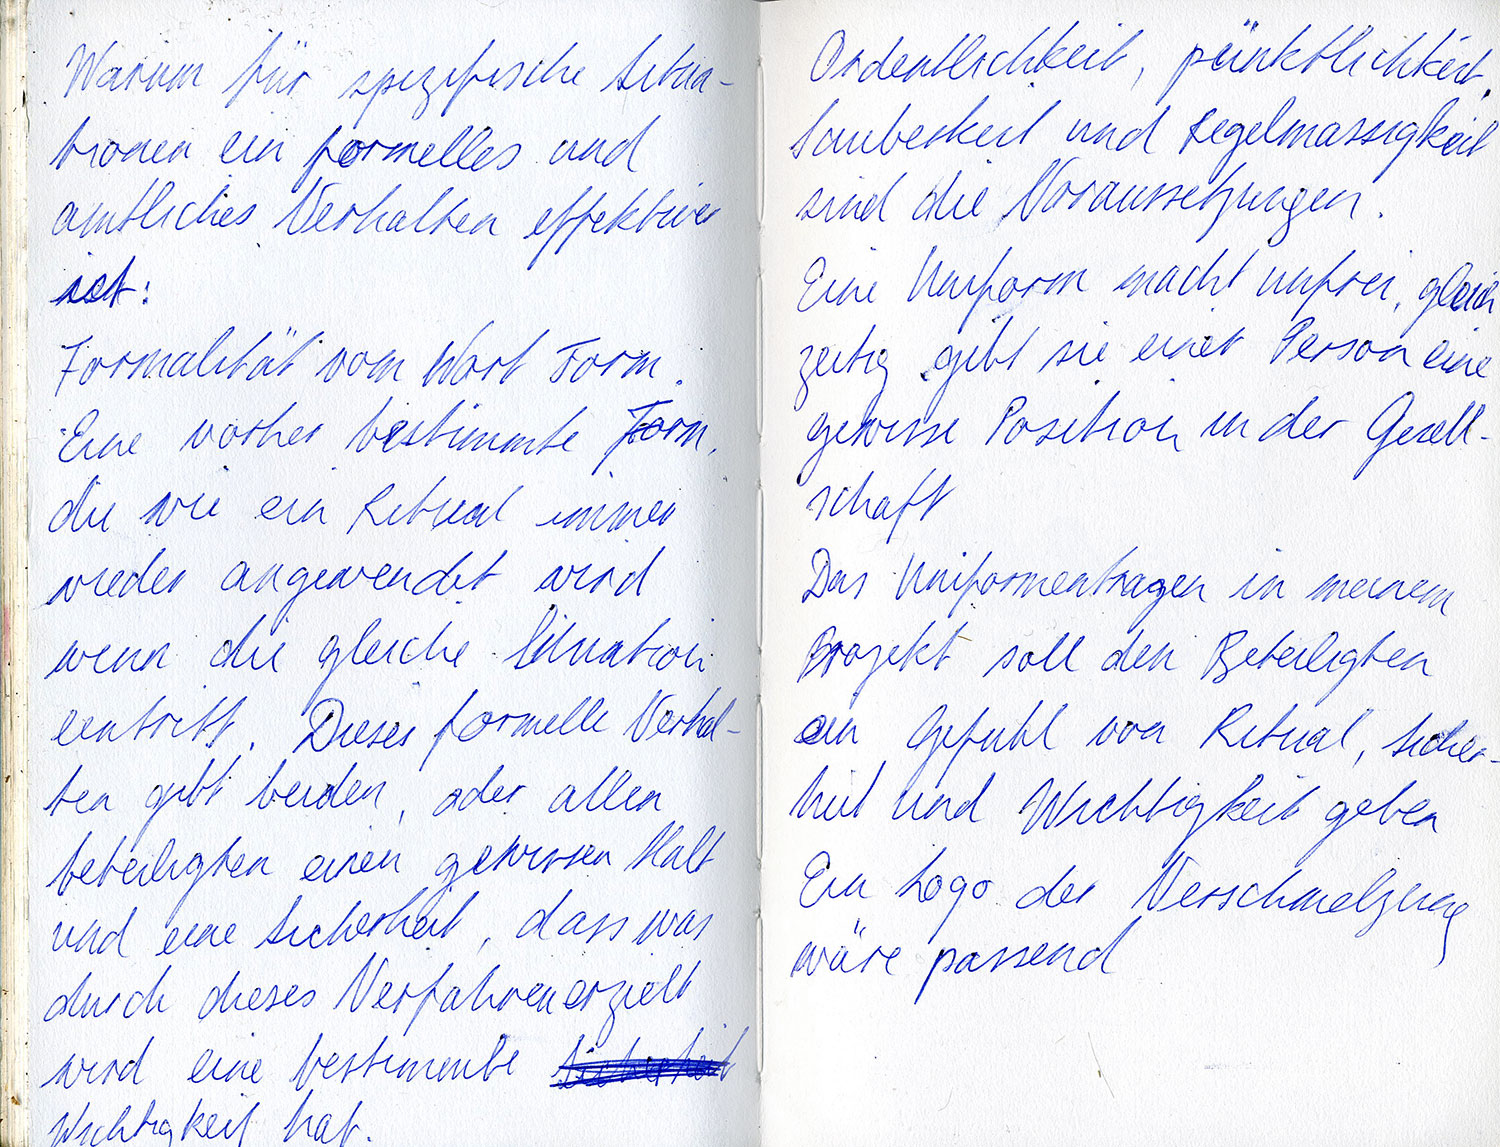 Warum für spezifische Situa-
tionen ein formelles und
amtliches Verhalten effektiver
ist:
Formalität vom Wort Form.
Eine vorher bestimmte Form,
die wie ein Ritual immer
wieder angewendet wird
wenn die gleiche Situation
eintritt. Dieses formelle Verhal-
ten gibt beiden, oder allen
beteiligten einen gewissen Halt
und eine Sicherheit, dass was
durch dieses Verfahren erzielt
wird eine bestimmte Sicherheit
Wichtigkeit hat.
Ordentlichkeit, pünktlichkeit,
Sauberkeit und Regelmassigkeit
sind die Voraussetzungen.
Eine Uniform macht unfrei, gleich
zeitig gibt sie einer Person eine
gewisse Position in der Gesell-
schaft
Das Uniformentragen in meinem
Projekt soll den Beteiligten
ein Gefühl von Ritual, Sicher-
heit und Wichtigkeit geben
Ein Logo der Verschmelzung
wäre passend